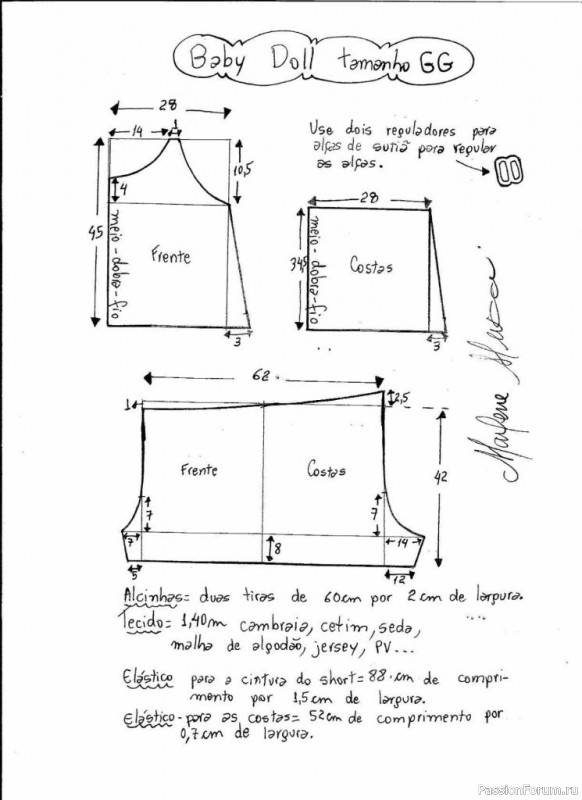 Baby Doll tamanho GG
28
14
1
10,5
4
45
meio-dobra-fio
Frente
3
Use dois reguladores para
alças de sutiã para regular
as alças.
28
34,5
meio-dobra-fio
Costas
3
Marlene Mukai
62
1
2,5
Frente
Costas
42
7
7
7
8
14
5
12
Alcinhas= duas tiras de 60cm por 2cm de largura.
Tecido= 1,40m cambraia, cetim, seda,
malha de algodão, jersey, PV...
Elástico para a cintura do short= 88 cm de compri-
mento por 1,5cm de largura.
Elástico-para as costas= 52cm de comprimento por
0,7cm de largura.
PassionForum.ru